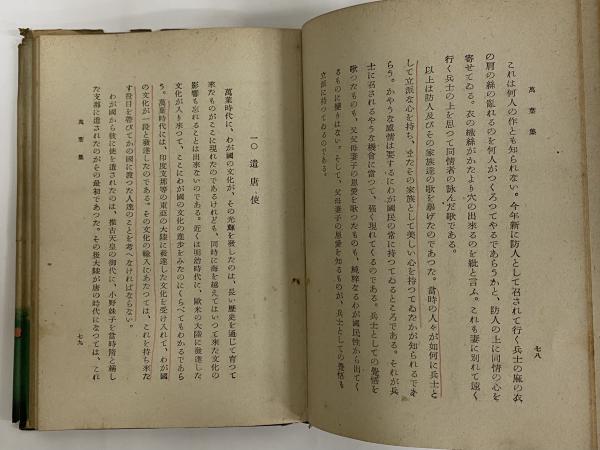 萬葉集
七八
これは何人の作とも知られない。今年新に防人として召されて行く兵士の麻の衣
の肩の絲の亂れるのを何人がつくろつてやるであらうかと、防人の上に同情の心を
寄せてゐる。衣の織絲がかたより穴の出來るのを紕と言ふ。これも妻に別れて遠く
行く兵士の上を思つて同情者の詠んだ歌である。
以上は防人及びその家族達の歌を擧げたのであつた。當時の人々が如何に兵士と
して立派な心を持ち、またその家族として美しい心を持つてゐたかが知られるであ
らう。かやうな感情は要するにわが國民の常に持つてゐるところである。それが兵
士に召されるやうな機會に當つて、強く現れてくるのである。兵士としての覺悟を
歌つたものも、又父母妻子の恩愛を歌つたものも、純粹なるわが國民性から出てく
るものに變りはない。そして、父母妻子の恩愛を知るものが、兵士としての覺悟も
立派に持つてゐるのである。
一〇 遣唐使
萬葉時代に、わが國の文化が、その光輝を發したのは、長い歴史を通じて育つて
來たものがここに現れたのであるけれども、同時に海を越えてはいつて來た文化の
影響も忘れることは出來ないのである。近くは明治時代に、歐米の大陸に發達した
文化が入り來つて、ここにわが國の文化の進步をみたのにくらべてもわかるであら
う。萬葉時代には、印度支那等の東亞の大陸に發達した文化を受け入れて、わが國
の文化が一段と發達したのである。その文化の輸入にあたつては、これを持ち來た
す役目を帶びてかの國に渡つた人達のことを考へなければならない。
わが國から彼に使を遣されたのは、推古天皇の御代に、小野妹子を當時隋と稱し
た支那に遣されたのがその最初であつた。その後大陸が唐の時代になつては、これ
萬葉集
七九